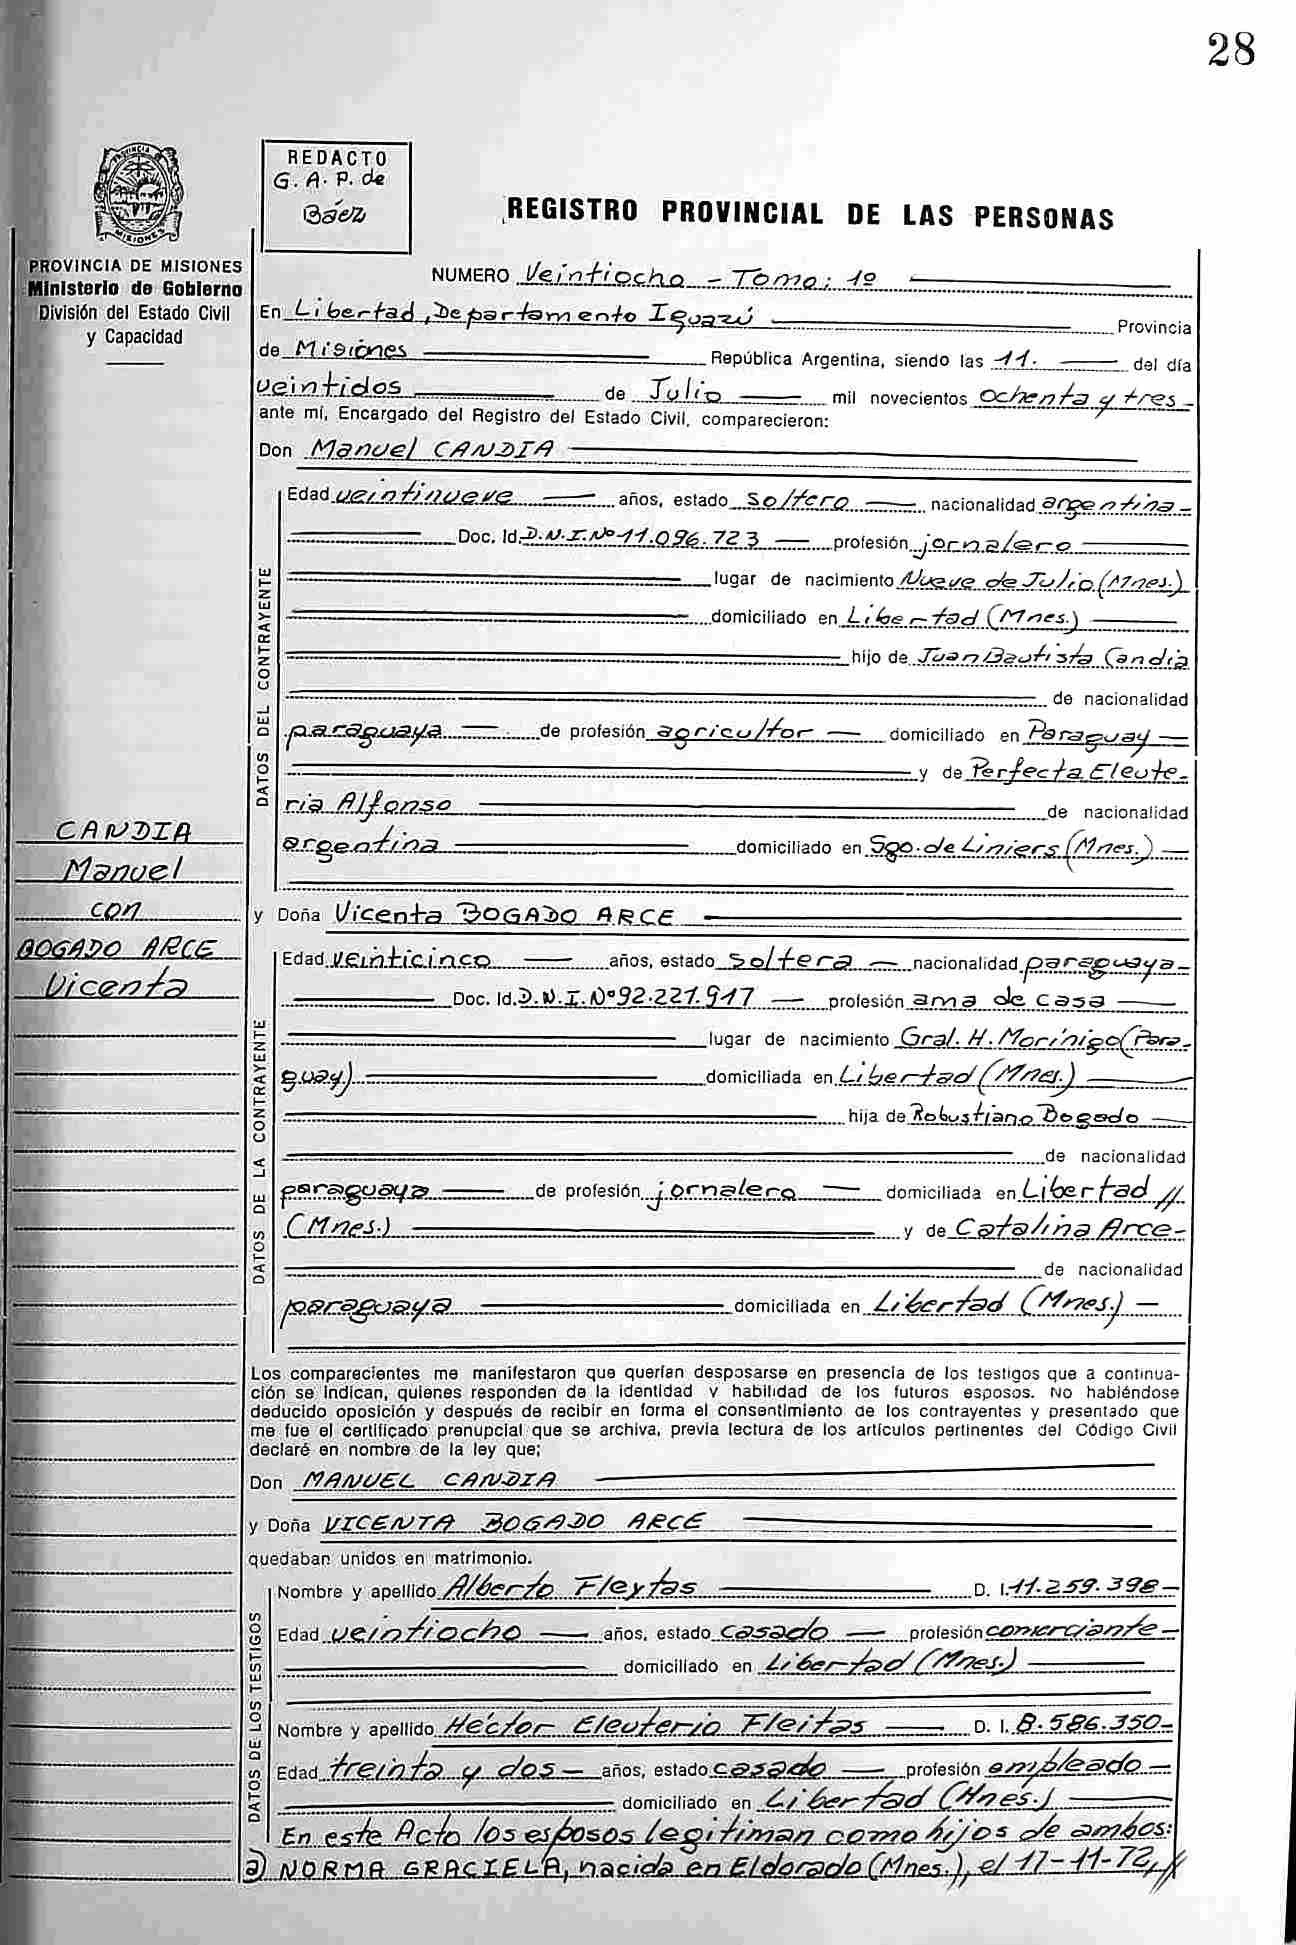 28
REDACTO
G. A. P. de
Báez
REGISTRO PROVINCIAL DE LAS PERSONAS
PROVINCIA DE MISIONES
Ministerio de Gobierno
División del Estado Civil
y Capacidad
NUMERO Veintiocho - Tomo: 1º
En Libertad, Departamento Iguazú Provincia
de Misiones República Argentina, siendo las 11. del día
veintidos de Julio mil novecientos ochenta y tres -
ante mí, Encargado del Registro del Estado Civil, comparecieron:
Don Manuel CANDIA
DATOS DEL CONTRAYENTE
Edad veintinueve años, estado soltero nacionalidad argentina -
Doc. Id. D.N.I. Nº 11.096.723 profesión jornalero
lugar de nacimiento Nueve de Julio (Mnes.)
domiciliado en Libertad (Mnes.)
hijo de Juan Bautista Candia
de nacionalidad
paraguaya de profesión agricultor domiciliado en Paraguay
y de Perfecta Eleute-
ria Alfonso de nacionalidad
argentina domiciliado en Sgo. de Liniers (Mnes.)
CANDIA
Manuel
con
BOGADO ARCE
Vicenta
y Doña Vicenta BOGADO ARCE
DATOS DE LA CONTRAYENTE
Edad veinticinco años, estado soltera nacionalidad paraguaya -
Doc. Id. D.N.I. Nº 92.221.917 profesión ama de casa
lugar de nacimiento Gral. H. Morínigo (Para-
guay) domiciliada en Libertad (Mnes.)
hija de Robustiano Bogado
de nacionalidad
paraguaya de profesión jornalero domiciliada en Libertad //
(Mnes.) y de Catalina Arce -
de nacionalidad
paraguaya domiciliada en Libertad (Mnes.) -
Los comparecientes me manifestaron que querían desposarse en presencia de los testigos que a continua-
ción se indican, quienes responden de la identidad y habilidad de los futuros esposos. No habiéndose
deducido oposición y después de recibir en forma el consentimiento de los contrayentes y presentado que
me fue el certificado prenupcial que se archiva, previa lectura de los artículos pertinentes del Código Civil
declaré en nombre de la ley que;
Don MANUEL CANDIA
y Doña VICENTA BOGADO ARCE
quedaban unidos en matrimonio.
DATOS DE LOS TESTIGOS
Nombre y apellido Alberto Fleytas D. I. 11.259.398 -
Edad veintiocho años, estado casado profesión comerciante -
domiciliado en Libertad (Mnes.)
Nombre y apellido Héctor Eleuterio Fleitas D. I. 8.586.350 -
Edad treinta y dos - años, estado casado profesión empleado -
domiciliado en Libertad (Mnes.)
En este Acto los esposos legitiman como hijos de ambos:
a) NORMA GRACIELA, nacida en Eldorado (Mnes.), el 17-11-72, //